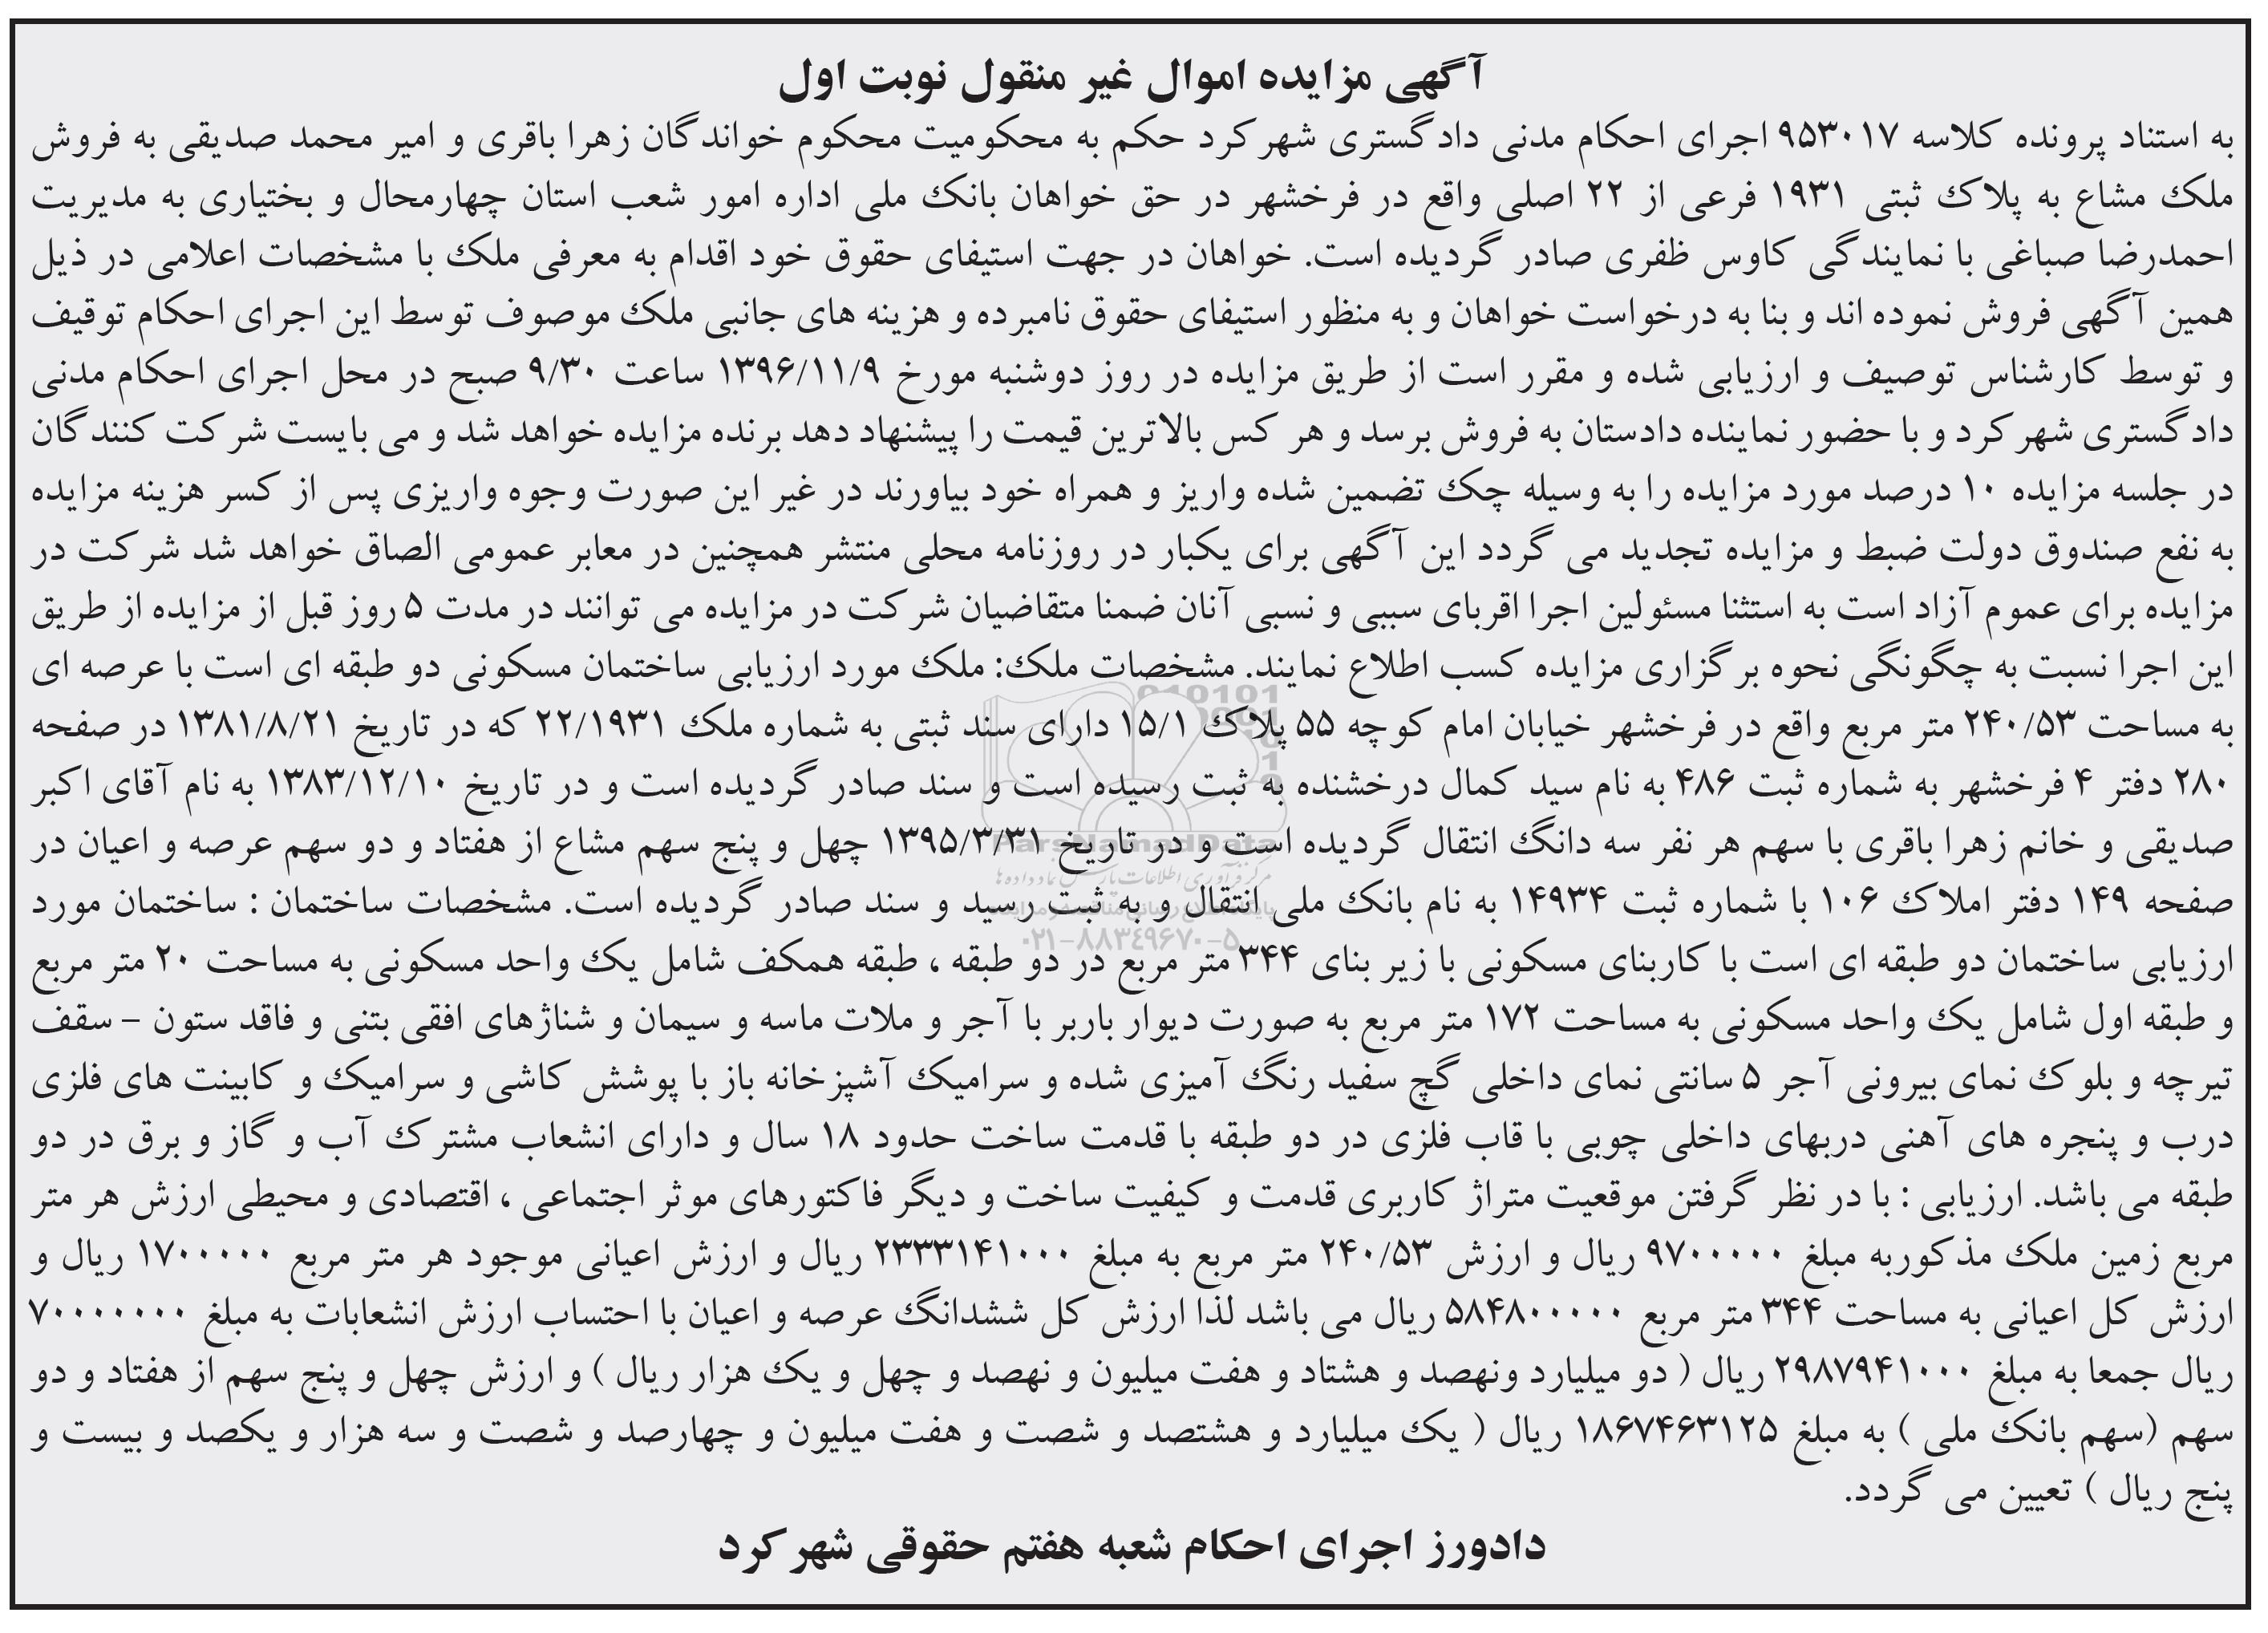 آگهی مزایده اموال غیر منقول نوبت اول
به استناد پرونده کلاسه ۹۵۳۰۱۷ اجرای احکام مدنی دادگستری شهرکرد حکم به محکومیت محکوم خواندگان زهرا باقری و امیر محمد صدیقی به فروش
ملک مشاع به پلاک ثبتی ۱۹۳۱ فرعی از ۲۲ اصلی واقع در فرخشهر در حق خواهان بانک ملی اداره امور شعب استان چهارمحال و بختیاری به مدیریت
احمدرضا صباغی با نمایندگی کاوس ظفری صادر گردیده است. خواهان در جهت استیفای حقوق خود اقدام به معرفی ملک با مشخصات اعلامی در ذیل
همین آگهی فروش نموده اند و بنا به درخواست خواهان و به منظور استیفای حقوق نامبرده و هزینه های جانبی ملک موصوف توسط این اجرای احکام توقیف
و توسط کارشناس توصیف و ارزیابی شده و مقرر است از طریق مزایده در روز دوشنبه مورخ ۱۳۹۶/۱۱/۹ ساعت ۹/۳۰ صبح در محل اجرای احکام مدنی
دادگستری شهرکرد و با حضور نماینده دادستان به فروش برسد و هر کس بالاترین قیمت را پیشنهاد دهد برنده مزایده خواهد شد و می بایست شرکت کنندگان
در جلسه مزایده ۱۰ درصد مورد مزایده را به وسیله چک تضمین شده واریز و همراه خود بیاورند در غیر این صورت وجوه واریزی پس از کسر هزینه مزایده
به نفع صندوق دولت ضبط و مزایده تجدید می گردد این آگهی برای یکبار در روزنامه محلی منتشر همچنین در معابر عمومی الصاق خواهد شد شرکت در
مزایده برای عموم آزاد است به استثنا مسئولین اجرا اقربای سببی و نسبی آنان ضمنا متقاضیان شرکت در مزایده می توانند در مدت ۵ روز قبل از مزایده از طریق
این اجرا نسبت به چگونگی نحوه برگزاری مزایده کسب اطلاع نمایند. مشخصات ملک: ملک مورد ارزیابی ساختمان مسکونی دو طبقه ای است با عرصه ای
به مساحت ۲۴۰/۵۳ متر مربع واقع در فرخشهر خیابان امام کوچه ۵۵ پلاک ۱۵/۱ دارای سند ثبتی به شماره ملک ۲۲/۱۹۳۱ که در تاریخ ۱۳۸۱/۸/۲۱ در صفحه
۲۸۰ دفتر ۴ فرخشهر به شماره ثبت ۴۸۶ به نام سید کمال درخشنده به ثبت رسیده است و سند صادر گردیده است و در تاریخ ۱۳۸۳/۱۲/۱۰ به نام آقای اکبر
صدیقی و خانم زهرا باقری با سهم هر نفر سه دانگ انتقال گردیده است و در تاریخ ۱۳۹۵/۳/۳۱ چهل و پنج سهم مشاع از هفتاد و دو سهم عرصه و اعیان در
صفحه ۱۴۹ دفتر املاک ۱۰۶ با شماره ثبت ۱۴۹۳۴ به نام بانک ملی انتقال و به ثبت رسید و سند صادر گردیده است. مشخصات ساختمان : ساختمان مورد
ارزیابی ساختمان دو طبقه ای است با کاربنای مسکونی با زیر بنای ۳۴۴ متر مربع در دو طبقه ، طبقه همکف شامل یک واحد مسکونی به مساحت ۲۰ متر مربع
و طبقه اول شامل یک واحد مسکونی به مساحت ۱۷۲ متر مربع به صورت دیوار باربر با آجر و ملات ماسه و سیمان و شناژهای افقی بتنی و فاقد ستون – سقف
تیرچه و بلوک نمای بیرونی آجر ۵ سانتی نمای داخلی گچ سفید رنگ آمیزی شده و سرامیک آشپزخانه باز با پوشش کاشی و سرامیک و کابینت های فلزی
درب و پنجره های آهنی دربهای داخلی چوبی با قاب فلزی در دو طبقه با قدمت ساخت حدود ۱۸ سال و دارای انشعاب مشترک آب و گاز و برق در دو
طبقه می باشد. ارزیابی : با در نظر گرفتن موقعیت متراژ کاربری قدمت و کیفیت ساخت و دیگر فاکتورهای موثر اجتماعی ، اقتصادی و محیطی ارزش هر متر
مربع زمین ملک مذکوربه مبلغ ۹۷۰۰۰۰۰ ریال و ارزش ۲۴۰/۵۳ متر مربع به مبلغ ۲۳۳۳۱۴۱۰۰۰ ریال و ارزش اعیانی موجود هر متر مربع ۱۷۰۰۰۰۰ ریال و
ارزش کل اعیانی به مساحت ۳۴۴ متر مربع ۵۸۴۸۰۰۰۰۰ ریال می باشد لذا ارزش کل ششدانگ عرصه و اعیان با احتساب ارزش انشعابات به مبلغ ۷۰۰۰۰۰۰۰
ریال جمعا به مبلغ ۲۹۸۷۹۴۱۰۰۰ ریال ( دو میلیارد ونهصد و هشتاد و هفت میلیون و نهصد و چهل و یک هزار ریال ) و ارزش چهل و پنج سهم از هفتاد و دو
سهم (سهم بانک ملی ) به مبلغ ۱۸۶۷۴۶۳۱۲۵ ریال ( یک میلیارد و هشتصد و شصت و هفت میلیون و چهارصد و شصت و سه هزار و یکصد و بیست و
پنج ریال ) تعیین می گردد.
دادورز اجرای احکام شعبه هفتم حقوقی شهرکرد
ParsNamadData
۰۲۱-۸۸۳۴۹۶۷۰-۵